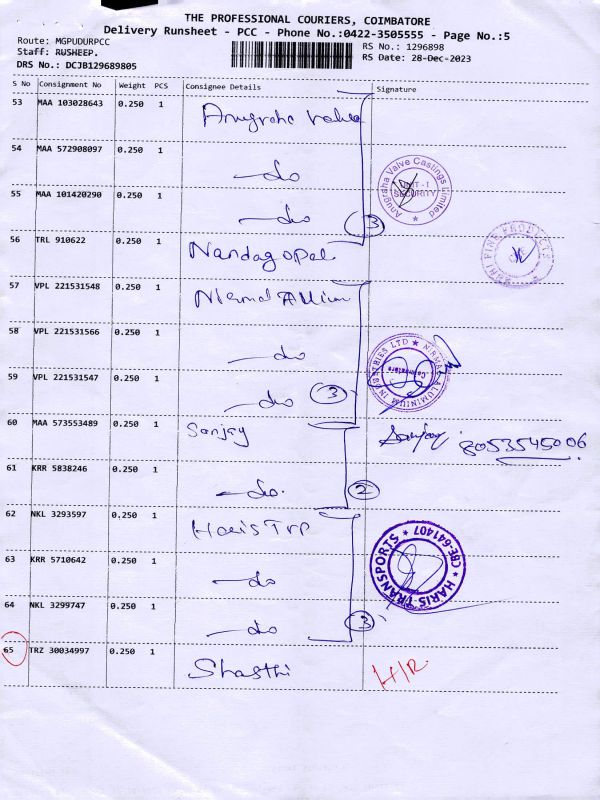 THE PROFESSIONAL COURIERS, COIMBATORE
Delivery Runsheet - PCC - Phone No.:0422-3505555 - Page No.:5
Route: MGPUDURPCC
RS No.: 1296898
Staff: RUSHEEP.
RS Date: 28-Dec-2023
DRS No.: DCJB129689805
S No Consignment No Weight PCS Consignee Details Signature
53 MAA 103028643 0.250 1 Anugraha Valve
54 MAA 572908097 0.250 1 —do
Anugraha Valve Castings Limited
UNIT-I
SECURITY
55 MAA 101420290 0.250 1 —do 3
56 TRL 910622 0.250 1 Nandagopal
57 VPL 221531548 0.250 1 Nirmal
58 VPL 221531566 0.250 1 —do
NIRMAL ALUMINIUM INDUSTRIES LTD
Coimbatore
59 VPL 221531547 0.250 1 —do 3
60 MAA 573553489 0.250 1 Sanjay Sanjay 8053545006
61 KRR 5838246 0.250 1 —do. 2
62 NKL 3293597 0.250 1 Haris Trp
HARIS TRANSPORTS
CBE-641407
63 KRR 5710642 0.250 1 —do
64 NKL 3299747 0.250 1 —do 3
65 TRZ 30034997 0.250 1 Shasthi H/R